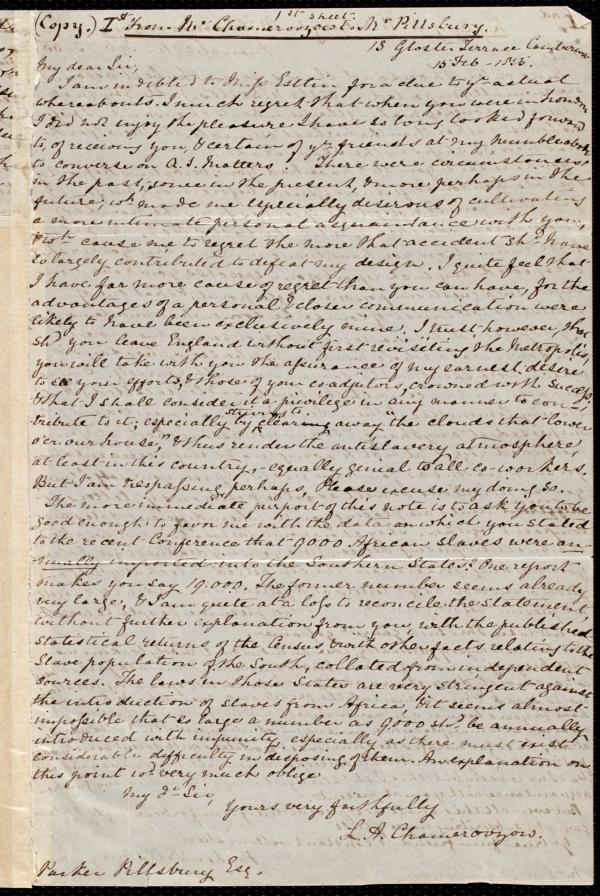 1st sheet.
(Copy.) Ist From Mr Chamerovzow to Mr Pillsbury.
13 Gloster Terrace Camberwell
15 Feb - 1855.
My dear Sir,
I am indebted to Miss Estlin for a clue to yr actual
whereabouts. I much regret that when you were in London
I did not enjoy the pleasure I have so long looked forward
to, of receiving you, & certain of yr friends at my humble abode,
to converse on A. S. Matters. There were circumstances
in the past, some in the present, & more perhaps in the
future, wh. made me especially desirous of cultivating
a more intimate personal acquaintance with you,
& wh. cause me to regret the more that accident shd. have
so largely contributed to defeat my design. I quite feel that
I have far more cause of regret than you can have, for the
advantages of a personal & closer communication were
likely to have been exclusively mine. I trust however, that
shd you leave England without first revisiting the Metropolis,
you will take with you the assurance of my earnest desire
to see your efforts, & those of your coadjutors, crowned with success;
& that I shall consider it a privilege in any manner to con-
tribute to it; especially by striving to clearing away "the clouds that lower
o'er our house," & thus render the antislavery atmosphere,
at least in this country, equally genial to all co-workers.
But I am trespassing perhaps, Please excuse my doing so.
The more immediate purport of this note is to ask you to be
good enough to favor me with the data on which you stated
to the recent Conference that 9000 African slaves were an-
nually imported into the Southern States? One report
makes you say 19.000. The former number seems already
very large, & I am quite at a loss to reconcile the statement,
without further explanation from you, with the published
statistical returns of the Census, & with other facts relating to the
Slave population of the South, collated from independent
sources. The laws in those States are very stringent against
the introduction of slaves from Africa, & it seems almost
impossible that so large a number as 9.000 shd. be annually
introduced with impunity, especially as there must exist
considerable difficulty in disposing of them. An explanation on
this point wd. very much oblige
My dr Sir,
Yours very faithfully
L. A. Chamerovzow.
Parker Pillsbury Esq.